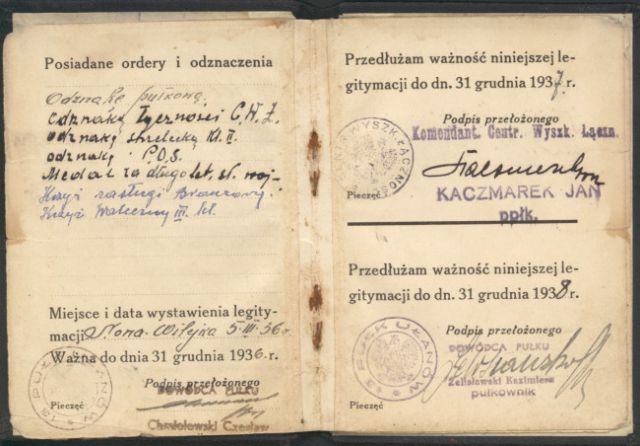 Posiadane ordery i odznaczenia
Odznakę pułkową.
odznakę Łączności C.W.Ł.
odznakę strzelecką kl. II.
odznakę P.O.S.
Medal za długolet. sł. woj-
Krzyż zasługi Bronzowy.
Krzyż Waleczny III kl.
Miejsce i data wystawienia legity-
macji Nowa-Wilejka 5-III-36r
Ważna do dnia 31 grudnia 1936 r.
Podpis przełożonego
DOWÓDCA PUŁKU
Pieczęć
13 PUŁK UŁANÓW
Czesław
Przedłużam ważność niniejszej le-
gitymacji do dn. 31 grudnia 1937 r.
Podpis przełożonego
Komendant. Centr. Wyszk. Łączn.
WYSZK. ŁĄCZNOŚCI
Pieczęć
KACZMAREK JAN
ppłk.
Przedłużam ważność niniejszej le-
gitymacji do dn. 31 grudnia 1938 r.
Podpis przełożonego
DOWÓDCA PUŁKU
13 PUŁK UŁANÓW
Żelisławski Kazimierz
Pieczęć
pułkownik